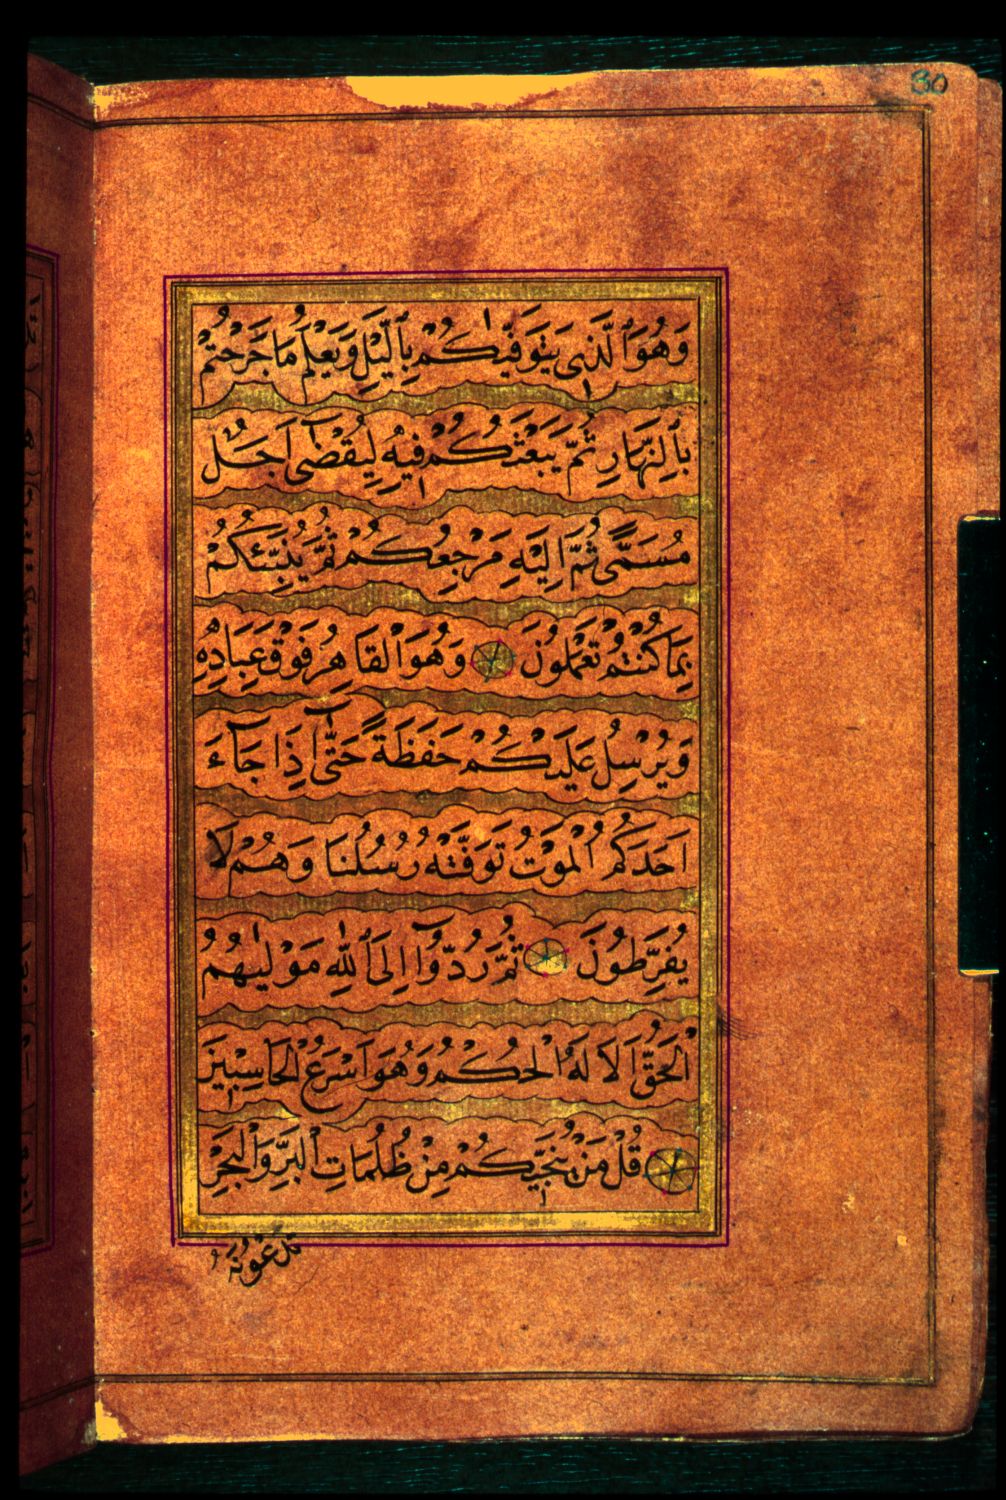 30
وَهُوَ ٱلَّذِى يَتَوَفّٰيكُمْ بِٱلَّيْلِ وَيَعْلَمُ مَا جَرَحْتُمْ
بِٱلنَّهَارِ ثُمَّ يَبْعَثُكُمْ فِيهِ لِيُقْضٰٓى اَجَلٌ
مُسَمًّى ثُمَّ اِلَيْهِ مَرْجِعُكُمْ ثُمَّ يُنَبِّئُكُمْ
بِمَا كُنْتُمْ تَعْمَلُونَ وَهُوَ الْقَاهِرُ فَوْقَ عِبَادِهِ
وَيُرْسِلُ عَلَيْكُمْ حَفَظَةً حَتّٰٓى اِذَا جَآءَ
اَحَدَكُمُ الْمَوْتُ تَوَفَّتْهُ رُسُلُنَا وَهُمْ لَا
يُفَرِّطُونَ ثُمَّ رُدُّوٓا اِلَى ٱللّٰهِ مَوْلٰيهُمُ
الْحَقِّ اَلَا لَهُ الْحُكْمُ وَهُوَ اَسْرَعُ الْحَاسِبِينَ
قُلْ مَنْ يُنَجِّيكُمْ مِنْ ظُلُمَاتِ الْبَرِّ وَالْبَحْرِ
تَدْعُونَهُ